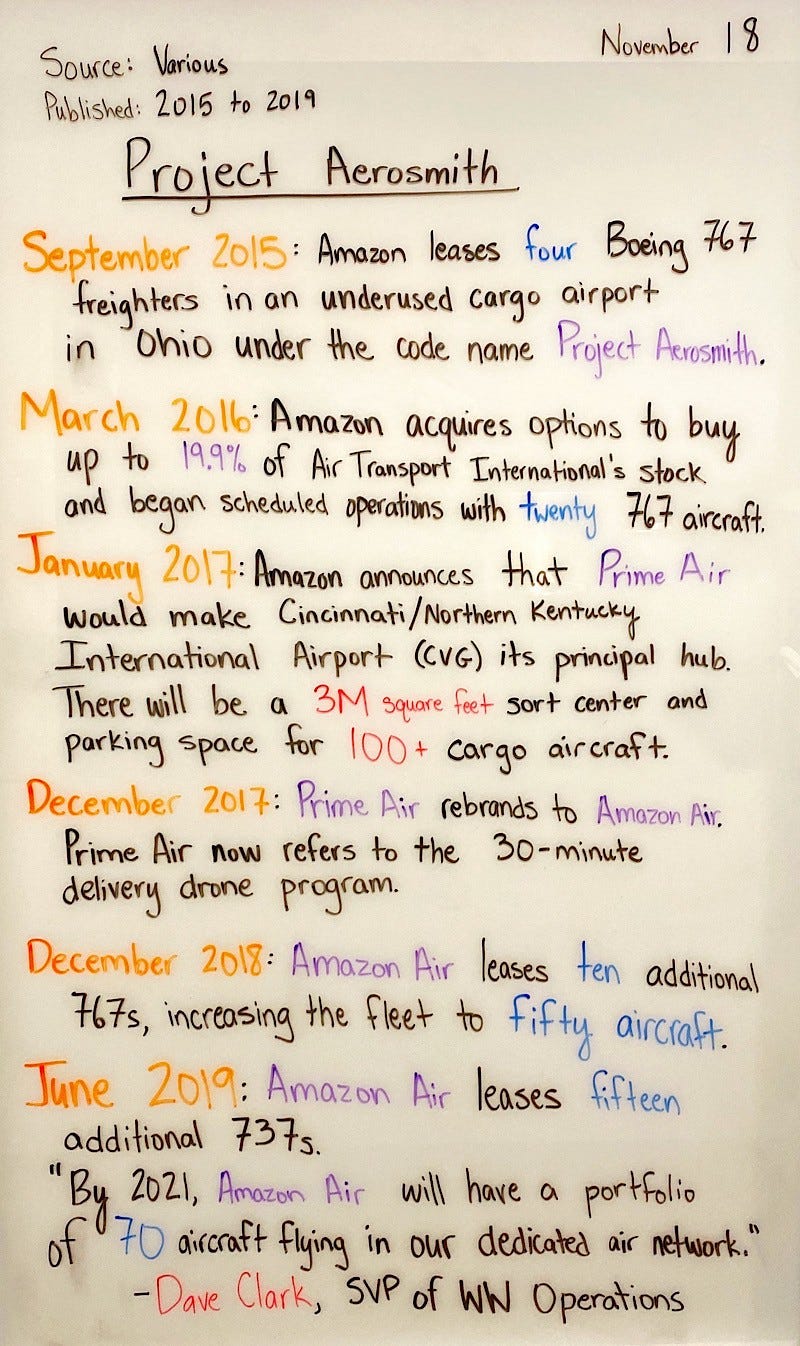 November 18
Source: Various
Published: 2015 to 2019
Project Aerosmith
September 2015: Amazon leases four Boeing 767
freighters in an underused cargo airport
in Ohio under the code name Project Aerosmith.
March 2016: Amazon acquires options to buy
up to 19.9% of Air Transport International's stock
and began scheduled operations with twenty 767 aircraft.
January 2017: Amazon announces that Prime Air
would make Cincinnati/Northern Kentucky
International Airport (CVG) its principal hub.
There will be a 3M square feet sort center and
parking space for 100+ cargo aircraft.
December 2017: Prime Air rebrands to Amazon Air.
Prime Air now refers to the 30-minute
delivery drone program.
December 2018: Amazon Air leases ten additional
767s, increasing the fleet to fifty aircraft.
June 2019: Amazon Air leases fifteen
additional 737s.
"By 2021, Amazon Air will have a portfolio
of 70 aircraft flying in our dedicated air network."
-Dave Clark, SVP of WW Operations